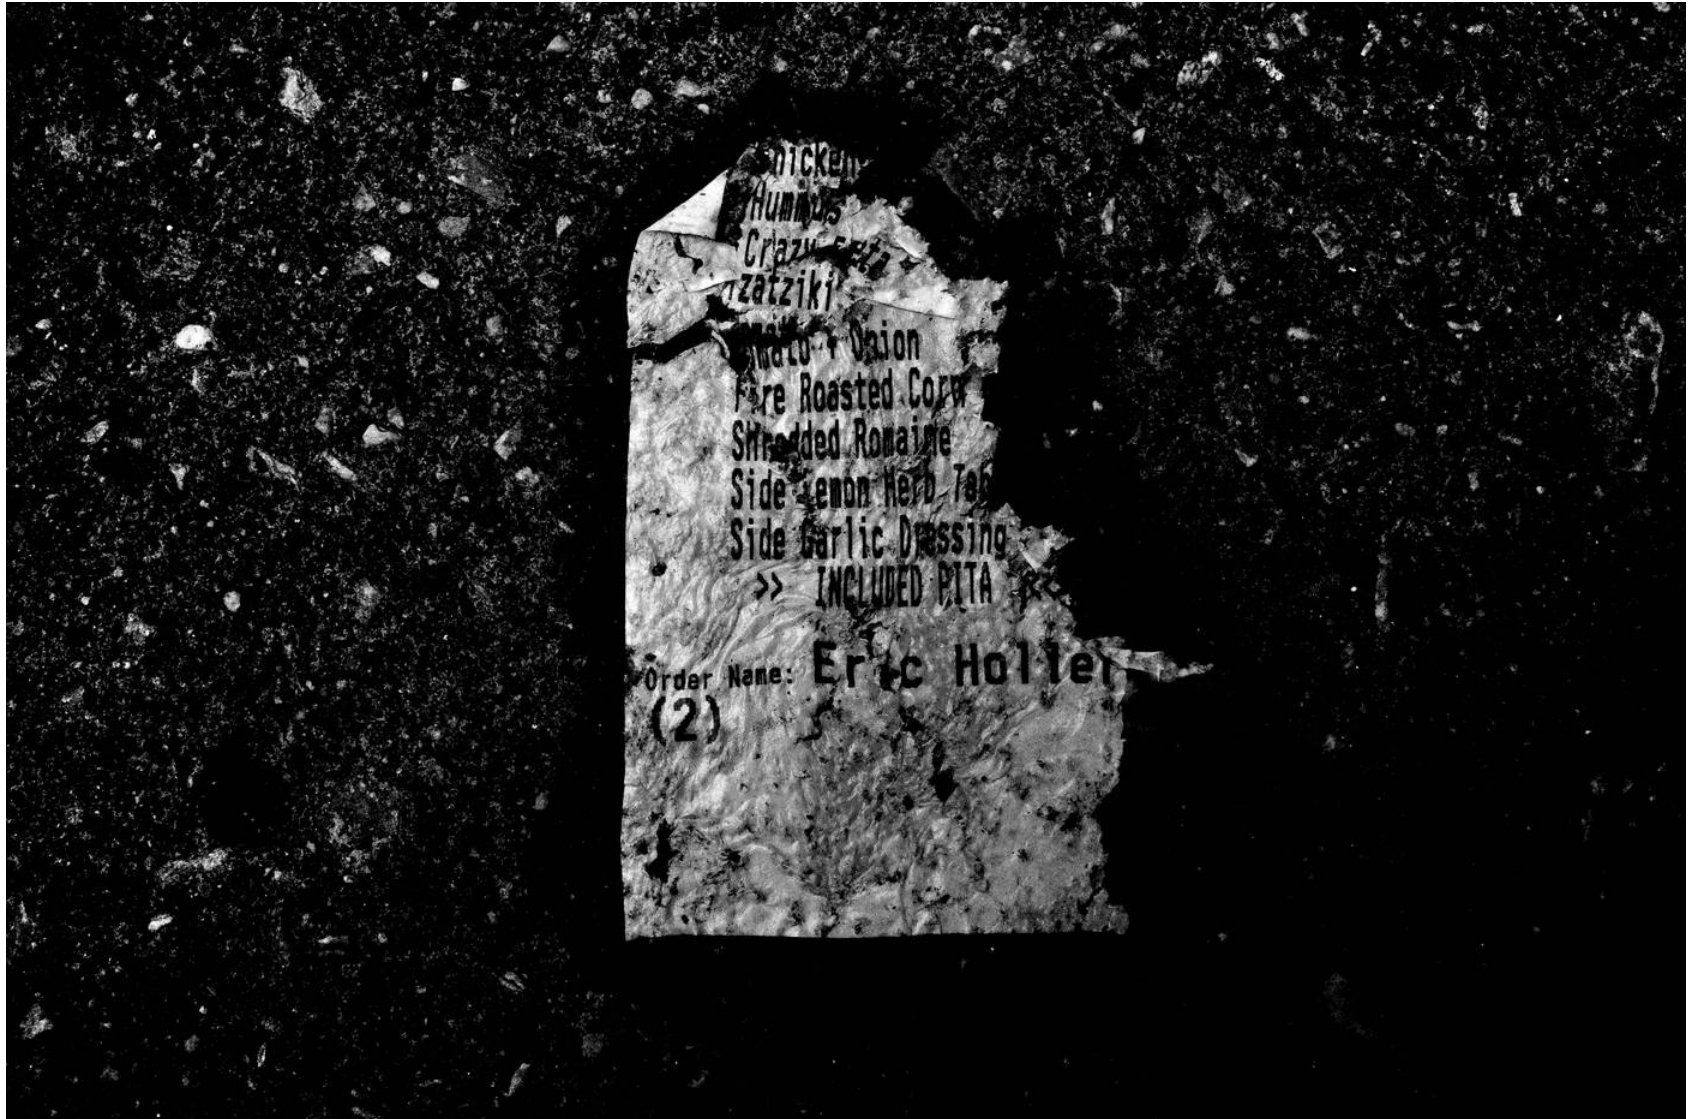 hicken
Hummus
Crazy Feta
Tzatziki
mato + Onion
Fire Roasted Corn
SHredded Romaine
Side Lemon Herb Ta
Side Garlic Dressing
>> INCLUDED PITA <<
Order Name: Eric Holler
(2)